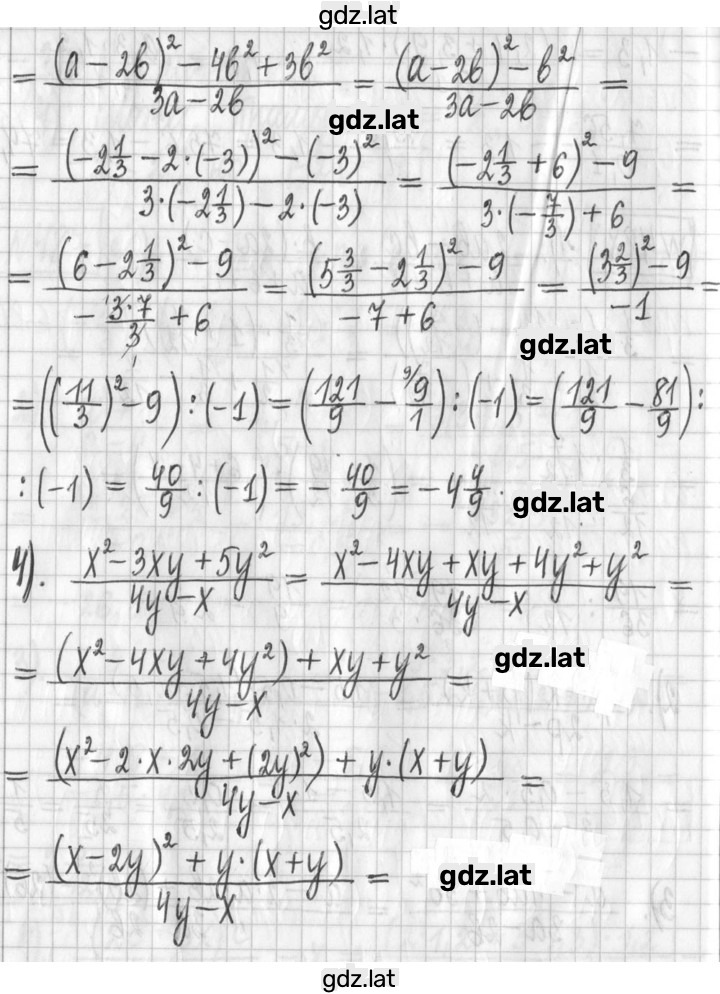 gdz.lat
= ((a − 2b)² − 4b² + 3b²)/(3a − 2b) = ((a − 2b)² − b²)/(3a − 2b) =
gdz.lat
= ((−2 1/3 − 2·(−3))² − (−3)²)/(3·(−2 1/3) − 2·(−3)) = ((−2 1/3 + 6)² − 9)/(3·(−7/3) + 6) =
= ((6 − 2 1/3)² − 9)/(−(3·7)/3 + 6) = ((5 3/3 − 2 1/3)² − 9)/(−7 + 6) = ((3 2/3)² − 9)/(−1) =
gdz.lat
= ((11/3)² − 9) : (−1) = (121/9 − ⁹⁄9/1) : (−1) = (121/9 − 81/9) :
: (−1) = 40/9 : (−1) = − 40/9 = −4 4/9.
gdz.lat
4). (x² − 3xy + 5y²)/(4y − x) = (x² − 4xy + xy + 4y² + y²)/(4y − x) =
= ((x² − 4xy + 4y²) + xy + y²)/(4y − x) =
gdz.lat
= ((x² − 2·x·2y + (2y)²) + y·(x + y))/(4y − x) =
= ((x − 2y)² + y·(x + y))/(4y − x) =
gdz.lat
gdz.lat